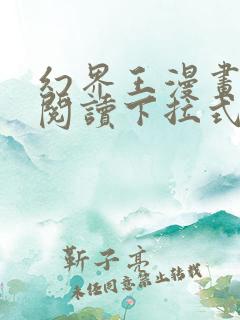 幻界王漫畫
閱讀下拉式
靳子亮
未經同意禁止轉載